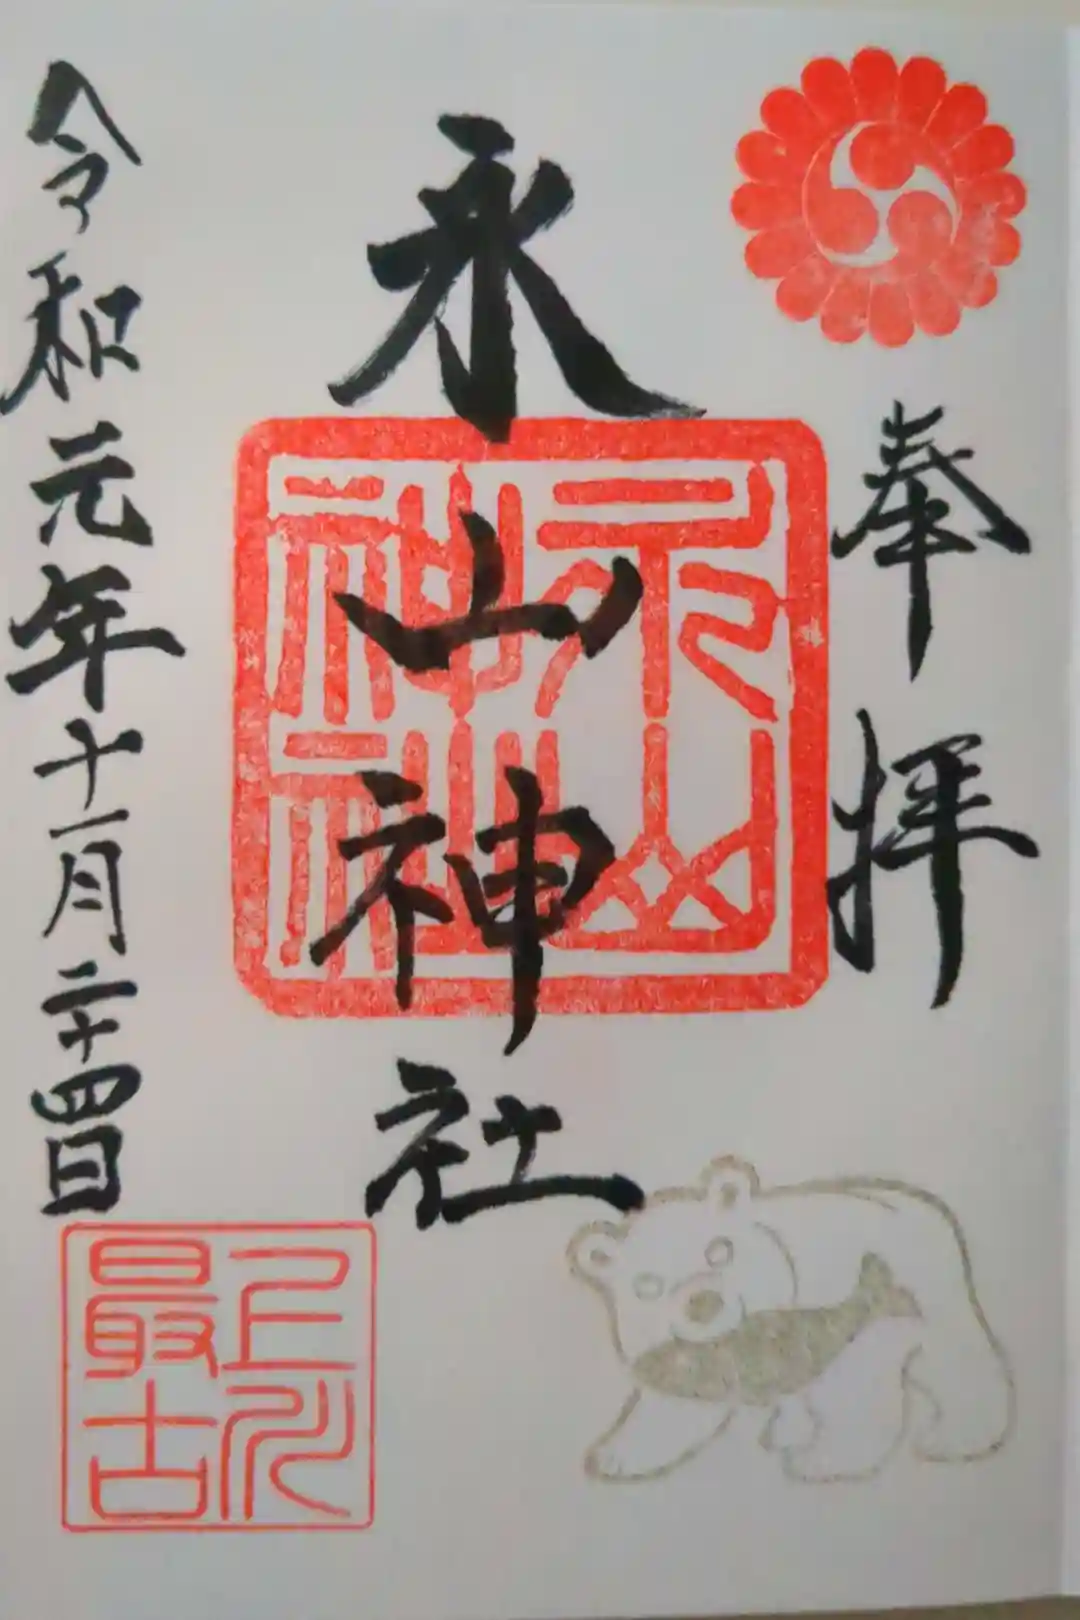 奉拝
永山神社
永山神社
令和元年十一月二十四日
上川最古